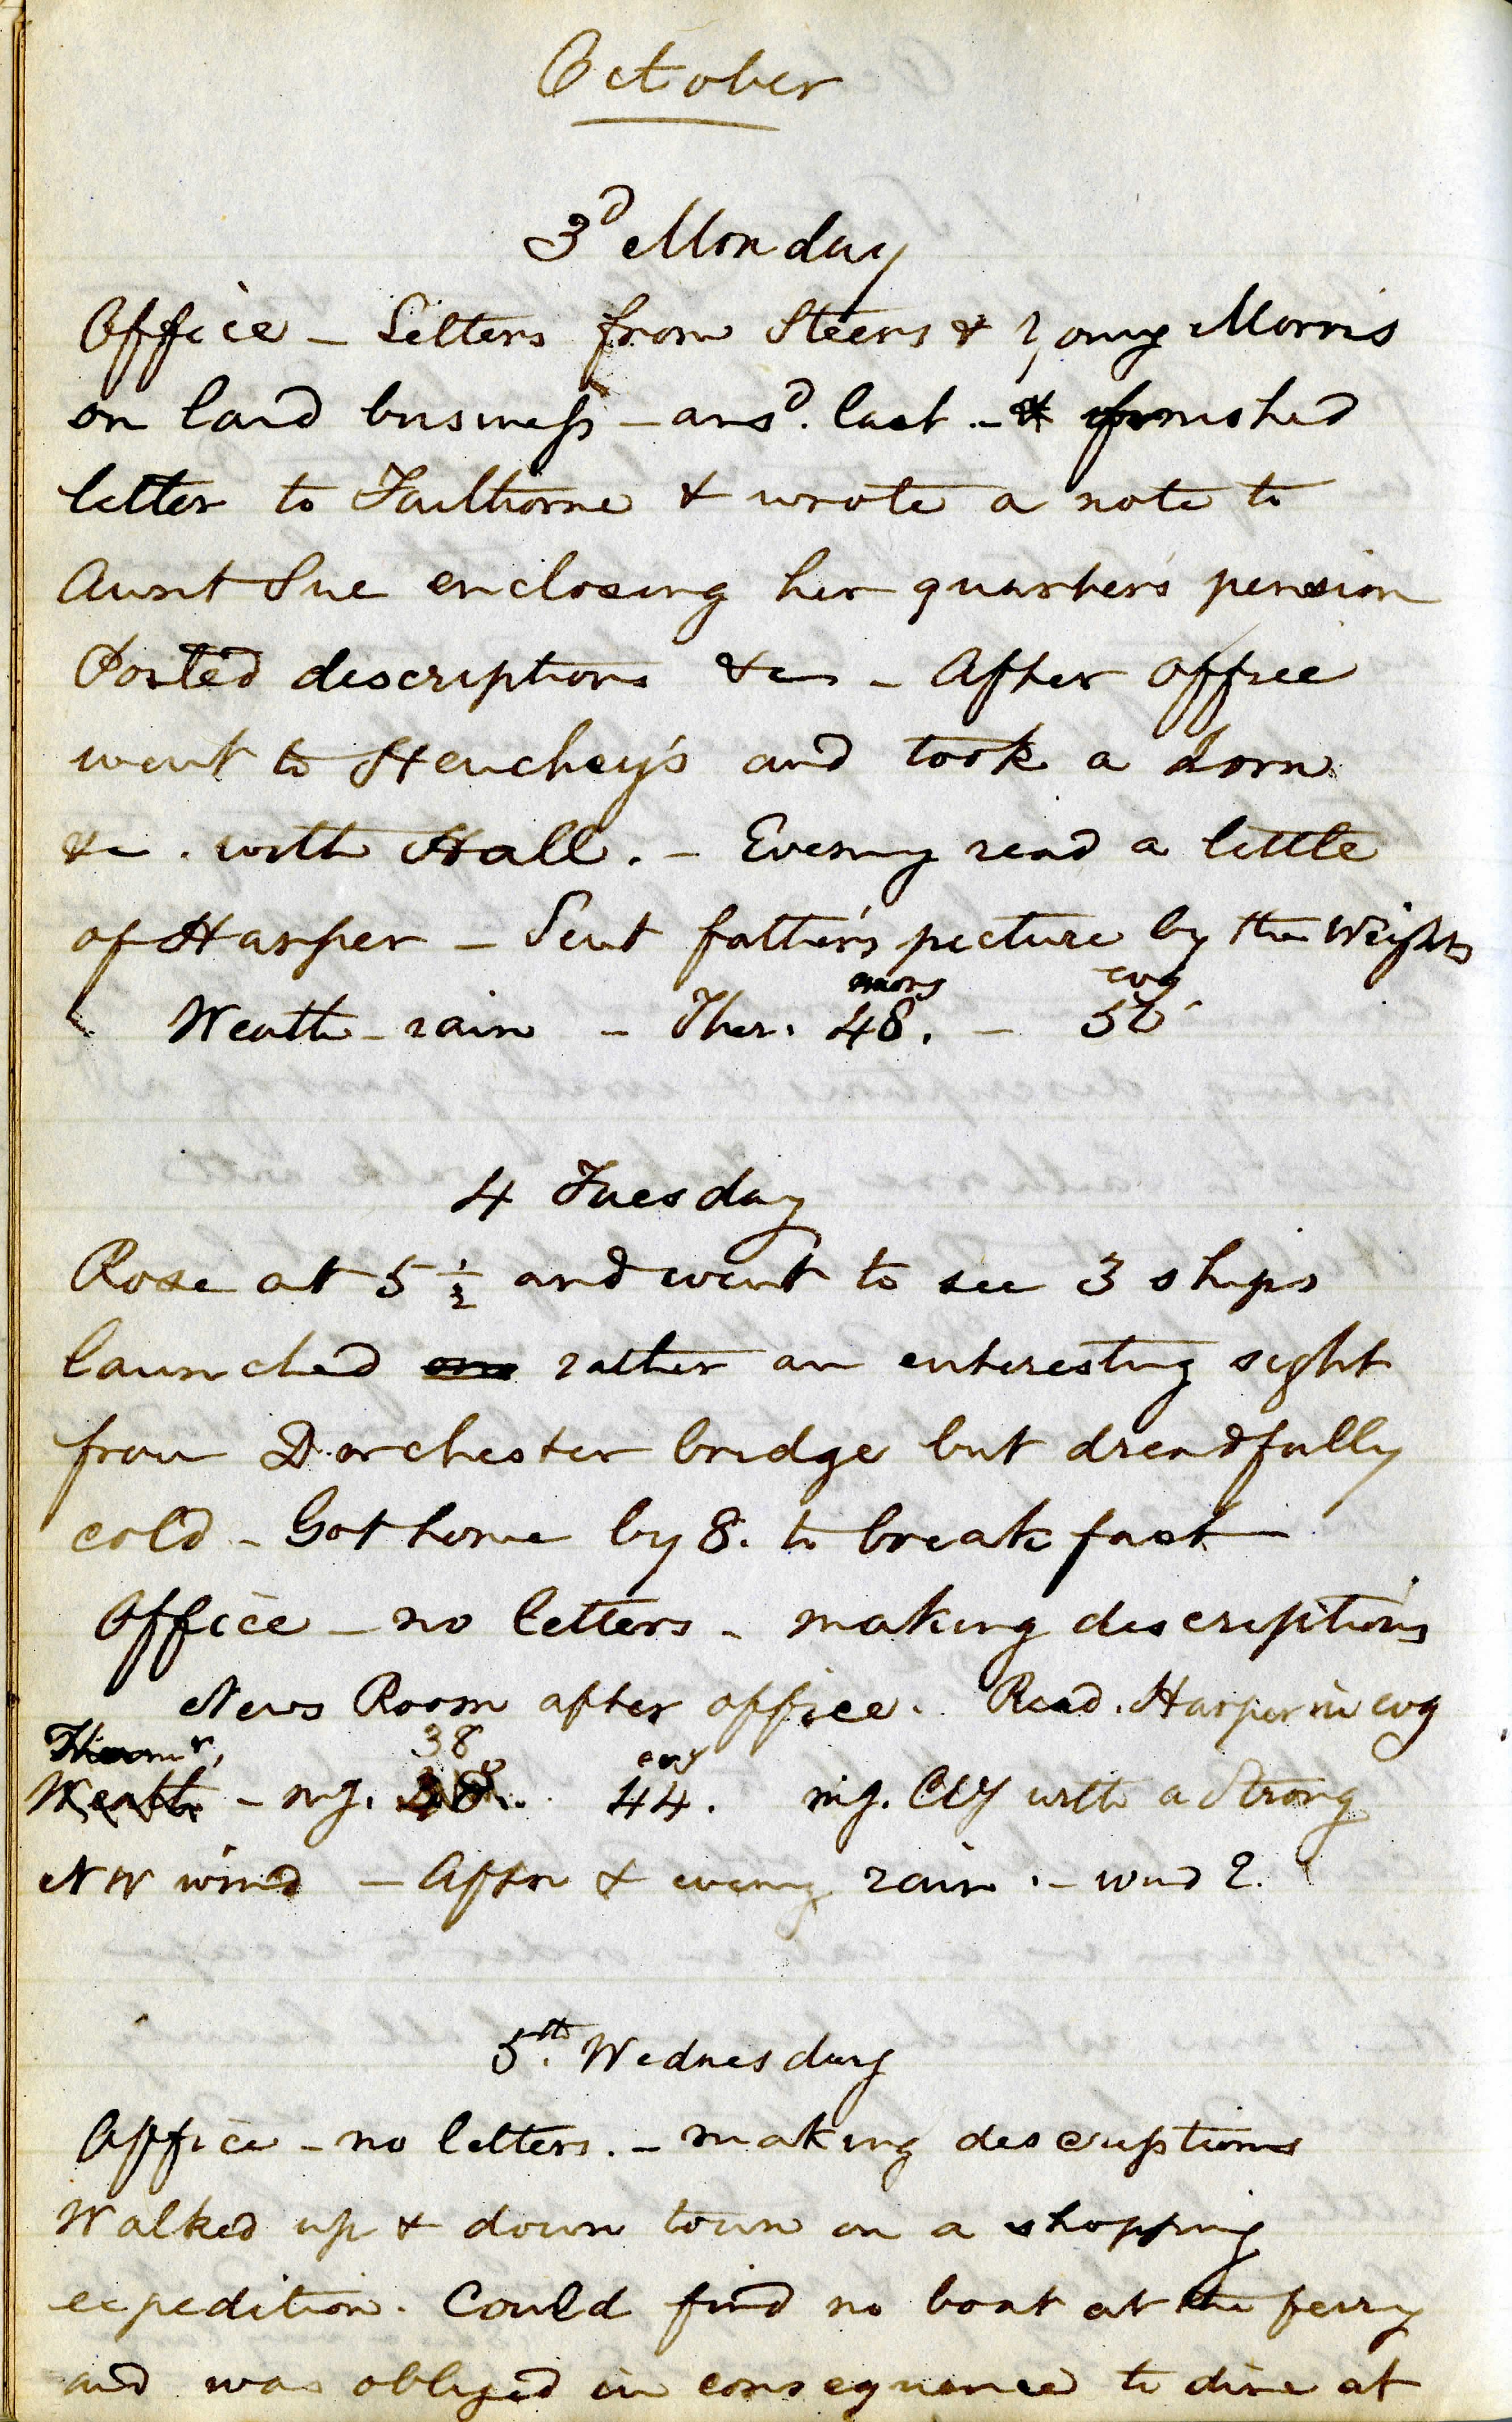 October
3d Monday
Office - Letters from Steers & young Morris
on land business - ansd. last - & furnished
letter to Faulthorne & wrote a note to
Aunt Sue enclosing her quarter's pension
Posted descriptions &c - After office
went to Henchey's and took a horn
&c. with Hall. - Evening read a little
of Harper - Sent father's picture by the Wrights
morg evg
Weath - rain - Ther. 48. - 50
4 Tuesday
Rose at 5 1/2 and went to see 3 ships
launched rather an interesting sight
from Dorchester bridge but dreadfully
cold - Got home by 8. to breakfast
Office - no letters - making descriptions
News Room after office. Read Harper in evg
Thermr, 38 evg
Weath - mg. 44. mg. Cly with a Strong
NW wind - Aftn & evening rain. - wind ?
5th. Wednesday
Office - no letters. - making descriptions
Walked up & down town on a shopping
expedition. Could find no boat at the ferry
and was obliged in consequence to dine at